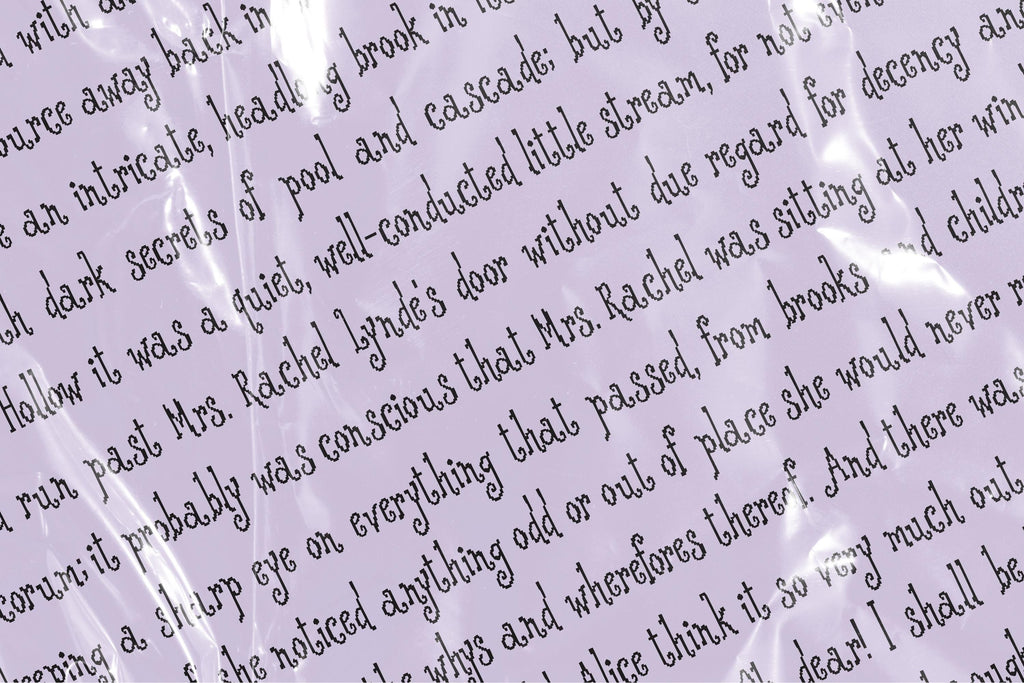 with
ource away back in
an intricate, headlong brook in
dark secrets of pool and cascade; but by
Hollow it was a quiet, well-conducted little stream, for not even
run past Mrs. Rachel Lynde's door without due regard for decency and
corum; it probably was conscious that Mrs. Rachel was sitting at her win
eeping a sharp eye on everything that passed, from brooks and childr
she noticed anything odd or out of place she would never
whys and wherefores thereof. And there was
Alice think it so very much out
dear! I shall be